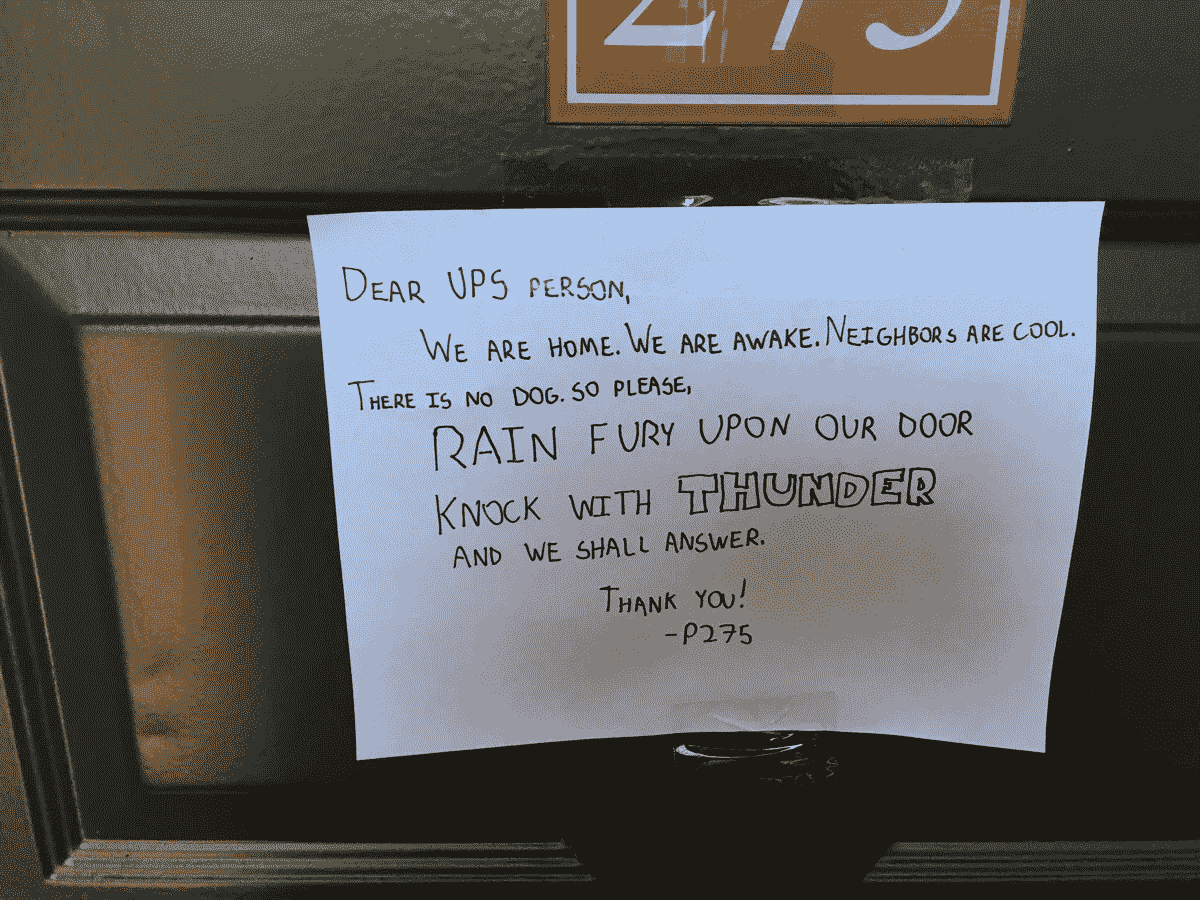 275
DEAR UPS PERSON,
WE ARE HOME. WE ARE AWAKE. NEIGHBORS ARE COOL.
THERE IS NO DOG. SO PLEASE,
RAIN FURY UPON OUR DOOR
KNOCK WITH THUNDER
AND WE SHALL ANSWER.
THANK YOU!
-P275